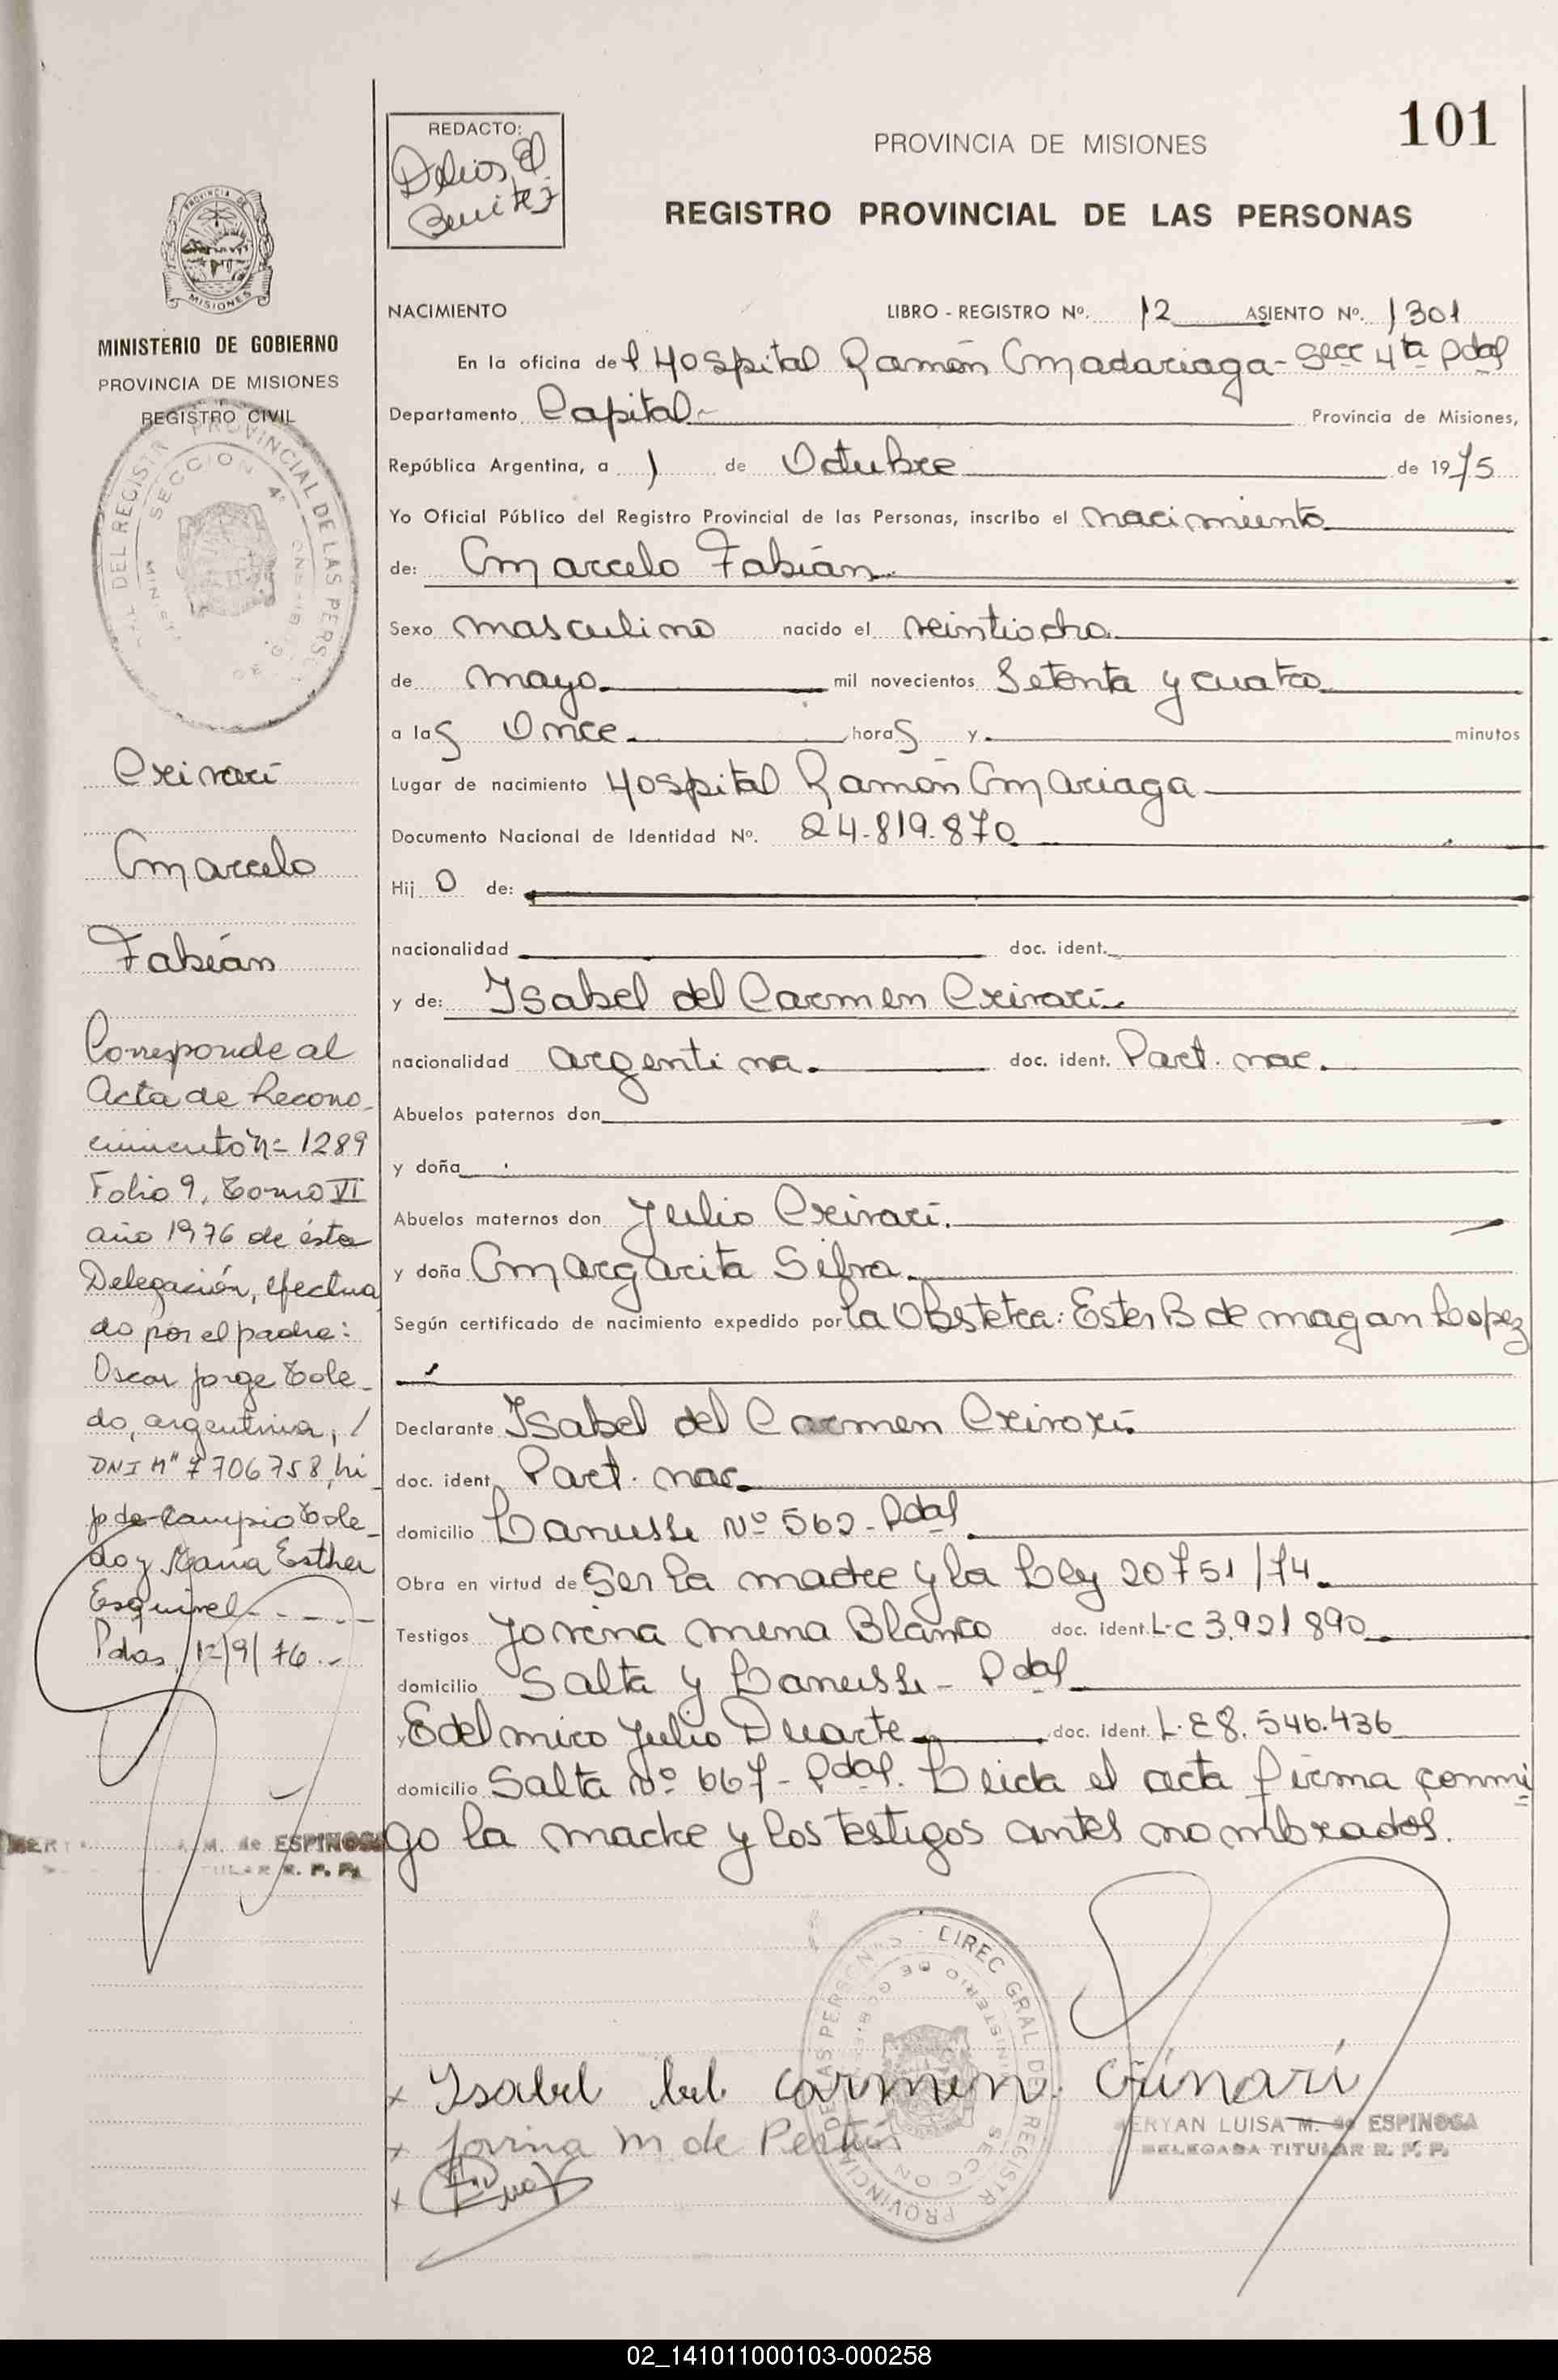 101
REDACTO:
Benitez
PROVINCIA DE MISIONES
REGISTRO PROVINCIAL DE LAS PERSONAS
PROVINCIA DE
MISIONES
MINISTERIO DE GOBIERNO
PROVINCIA DE MISIONES
REGISTRO CIVIL
Crivari
Marcelo
Fabián
Corresponde al
Acta de Recono-
cimiento Nº 1289
Folio 9, Tomo VI
año 1976 de ésta
Delegación, efectua
do por el padre:
Oscar Jorge Tole-
do, argentino, /
DNI Nº 7706758, hi
jo de Campio Tole-
do y María Esther
Esquivel - - . - -
Pdas, 12/9/76.-
M. de ESPINOSA
TULAR R. P. P.
NACIMIENTO LIBRO - REGISTRO Nº. 12 ASIENTO Nº. 1301
En la oficina del Hospital Ramón Madariaga - Secc 4ta Pdas
Departamento Capital.- Provincia de Misiones,
República Argentina, a 1 de Octubre de 1975
Yo Oficial Público del Registro Provincial de las Personas, inscribo el nacimiento
de: Marcelo Fabián.
Sexo masculino nacido el veintiocho
de mayo. mil novecientos Setenta y cuatro
a las Once. horas y. minutos
Lugar de nacimiento Hospital Ramón Mariaga
Documento Nacional de Identidad Nº. 24.819.870
Hijo de:
nacionalidad doc. ident.
y de: Isabel del Carmen Crivari.
nacionalidad argentina. doc. ident. Part. nac.
Abuelos paternos don
y doña
Abuelos maternos don Julio Crivari.
y doña Margarita Silva.
Según certificado de nacimiento expedido por la Obstetra: Ester B de magan Lopez
Declarante Isabel del Carmen Crivari.
doc. ident. Part. nac.
domicilio Lanusse Nº 562 - Pdas.
Obra en virtud de Ser la madre y la Ley 20751/74.
Testigos Jovina mena Blanco doc. ident. L-C 3.921890
domicilio Salta y Lanusse - Pdas
y Edelmiro Julio Duarte doc. ident. L.E 8.546.436
domicilio Salta Nº 667 - Pdas. Leida el acta firma conmi
go la madre y los testigos antes nombrados.
DIREC GRAL DE REGISTR PROVINCIAL DE LAS PERSONAS
MINISTERIO DE GOBIERNO
SECCION
x Isabel del carmen. Crivari
x Jovina M de
x
ERYAN LUISA M. de ESPINOSA
DELEGADA TITULAR R. P. P.
02_141011000103-000258